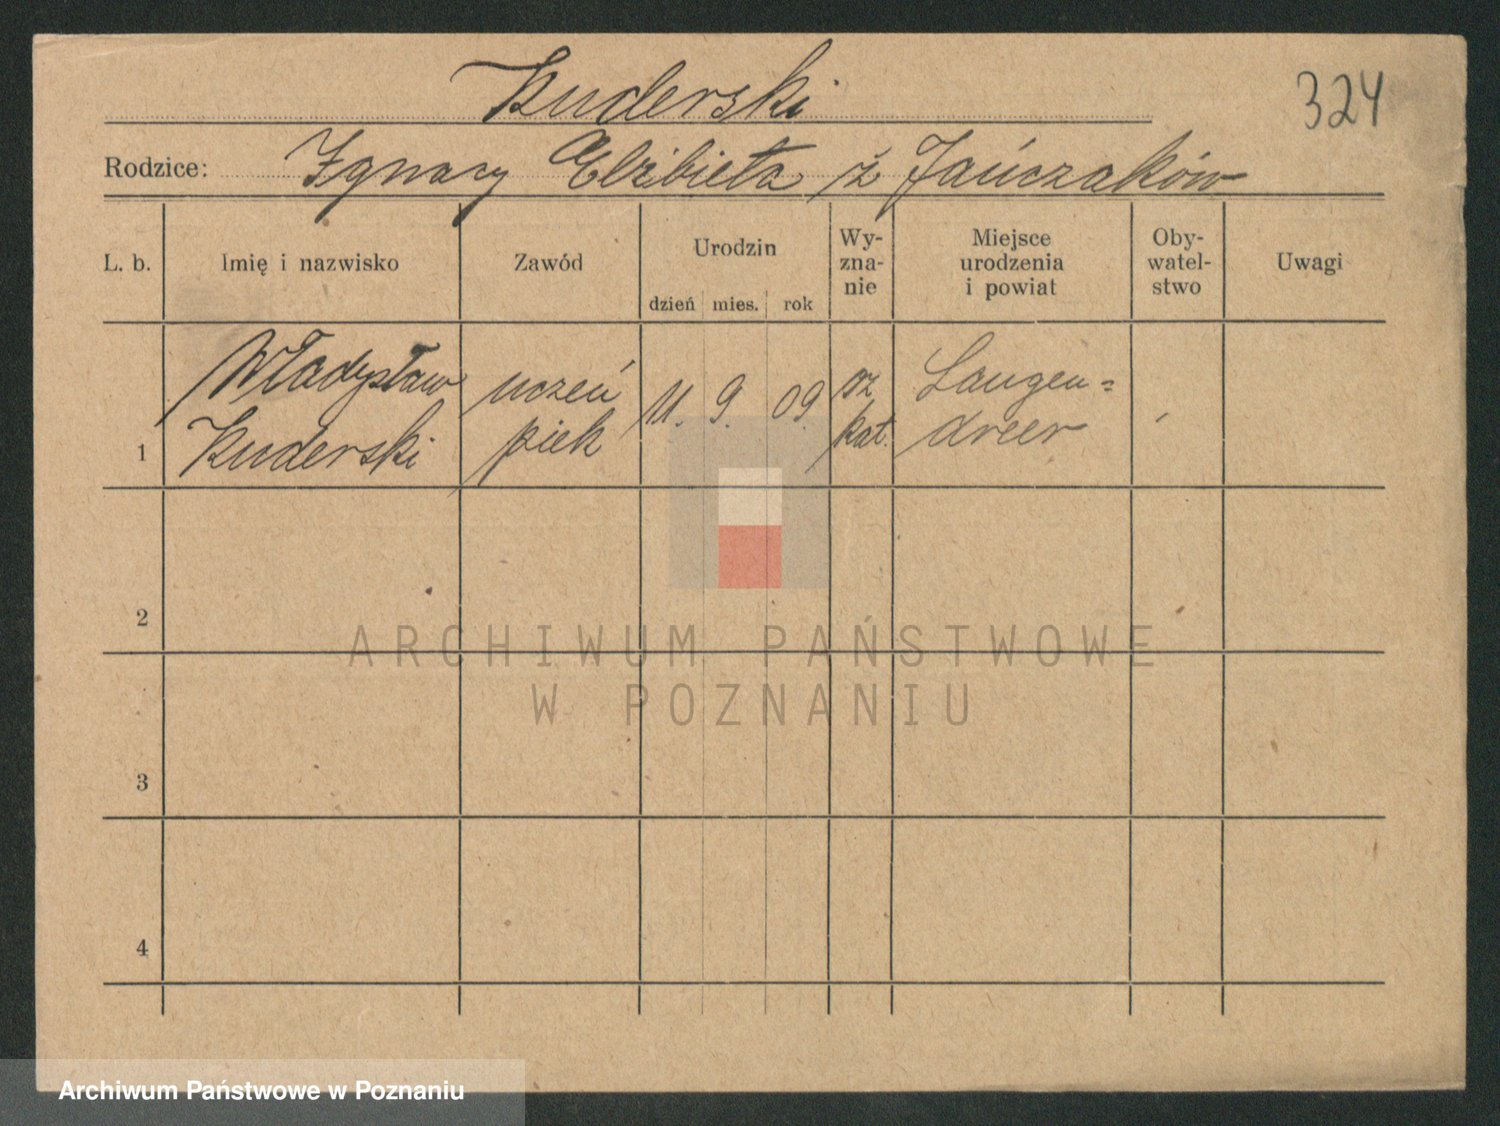 Kuderski
324
Rodzice: Ignacy Elżbieta z Jańczaków
L. b.
Imię i nazwisko
Zawód
Urodzin
dzień mies. rok
Wy-
zna-
nie
Miejsce
urodzenia
i powiat
Oby-
watel-
stwo
Uwagi
1
Władysław
Kuderski
uczeń
piek
11. 9. 09.
rz
kat.
Langen=
dreer
2
3
4
ARCHIWUM PAŃSTWOWE
W POZNANIU
Archiwum Państwowe w Poznaniu